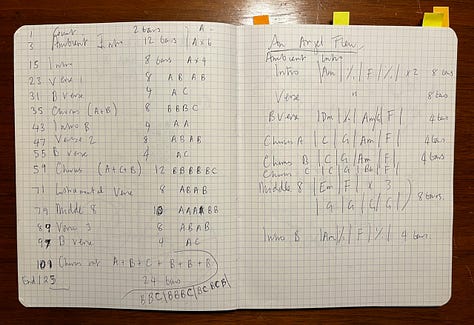 1 Count 2 bars A -
3 Ambient Intro 12 bars A x 6
15 Intro 8 bars A x 4
23 Verse 1 8 AB AB
31 B verse 4 A C
35 Chorus (A+B) 8 BBBC
43 Intro B 4 AA
47 Verse 2 8 ABAB
55 B verse 4 AC
59 Chorus (A+C+B) 12 BBBBBC
71 Instrumental Verse 8 ABAB
79 Middle 8 10 AAABB
89 Verse 3 8 ABAB
97 B verse 4 AC
101 Chorus out A+B+C+B+B+B
End 125 24 bars
BBC|BBBC|BCBCB|
An Angel Flew
Ambient Intro
Intro |Am|٪|F|٪| x 2 8 bars
Verse " 8 bars
B Verse |Dm|٪|Am/G|F| 4 bars
Chorus A |C|G|Am|F| 4 bars
Chorus B |C|G|Am|F| 4 bars
Chorus C |C|G|Bb|F|
Middle 8 |Em|F| x 3
|G|G|G|G| 8 bars
Intro B |Am|٪|F|٪| 4 bars.